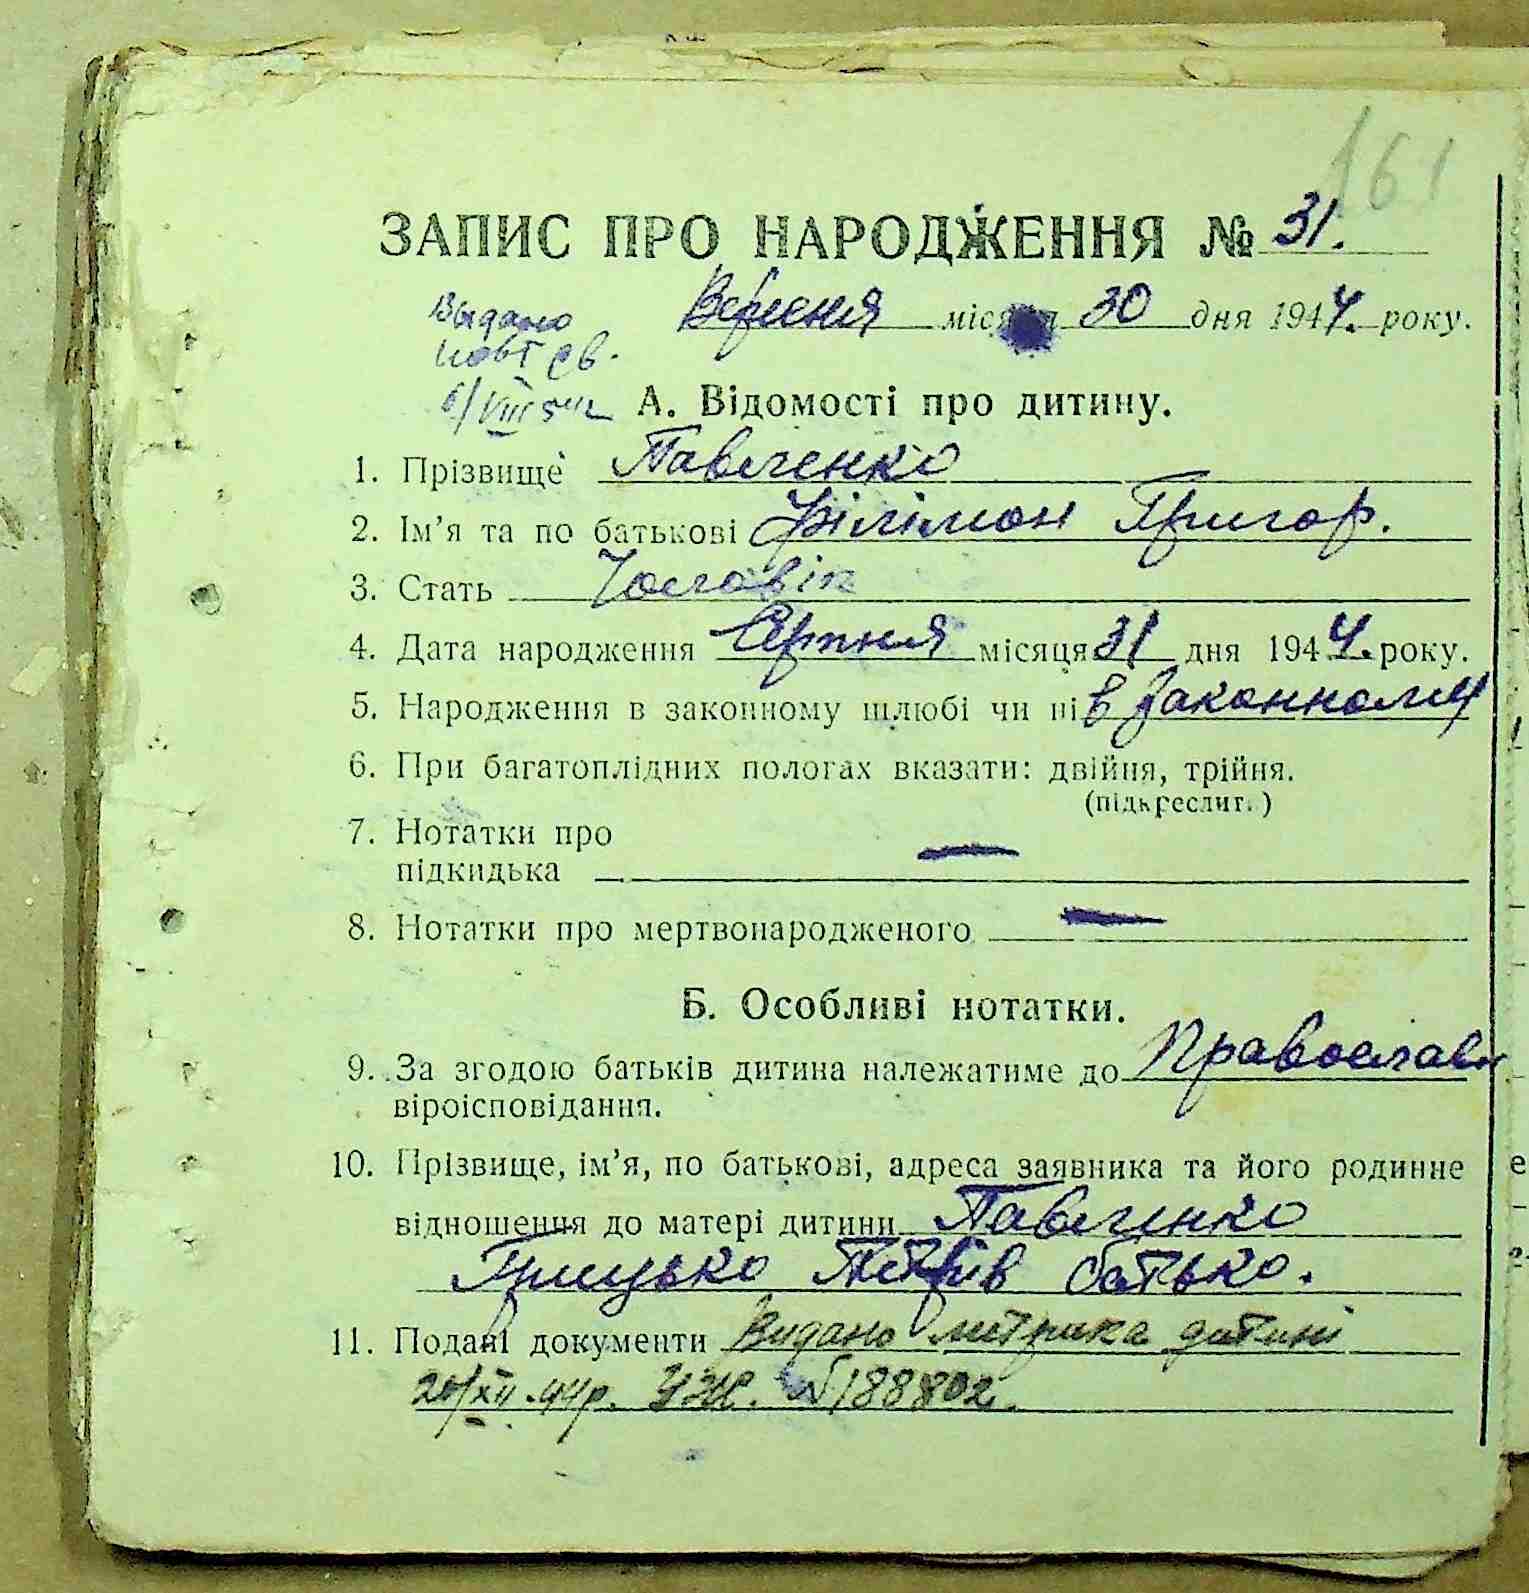 161
ЗАПИС ПРО НАРОДЖЕННЯ № 31.
Вересня місяця 30 дня 1944. року.
Выдано
повт св.
6/VIII 54г
А. Відомості про дитину.
1. Прізвище Павленко
2. Ім'я та по батькові Філімон Григор.
3. Стать Чоловік
4. Дата народження Серпня місяця 31 дня 1944. року.
5. Народження в законному шлюбі чи ні в законному
6. При багатоплідних пологах вказати: двійня, трійня.
(підкреслит.)
7. Нотатки про
підкидька —
8. Нотатки про мертвонародженого —
Б. Особливі нотатки.
9. За згодою батьків дитина належатиме до Православн
віроісповідання.
10. Прізвище, ім'я, по батькові, адреса заявника та його родинне
відношення до матері дитини Павленко
Грицько Петрів батько.
11. Подані документи Видано метрика дитині
20/XII.44р. УЖ. №188802.